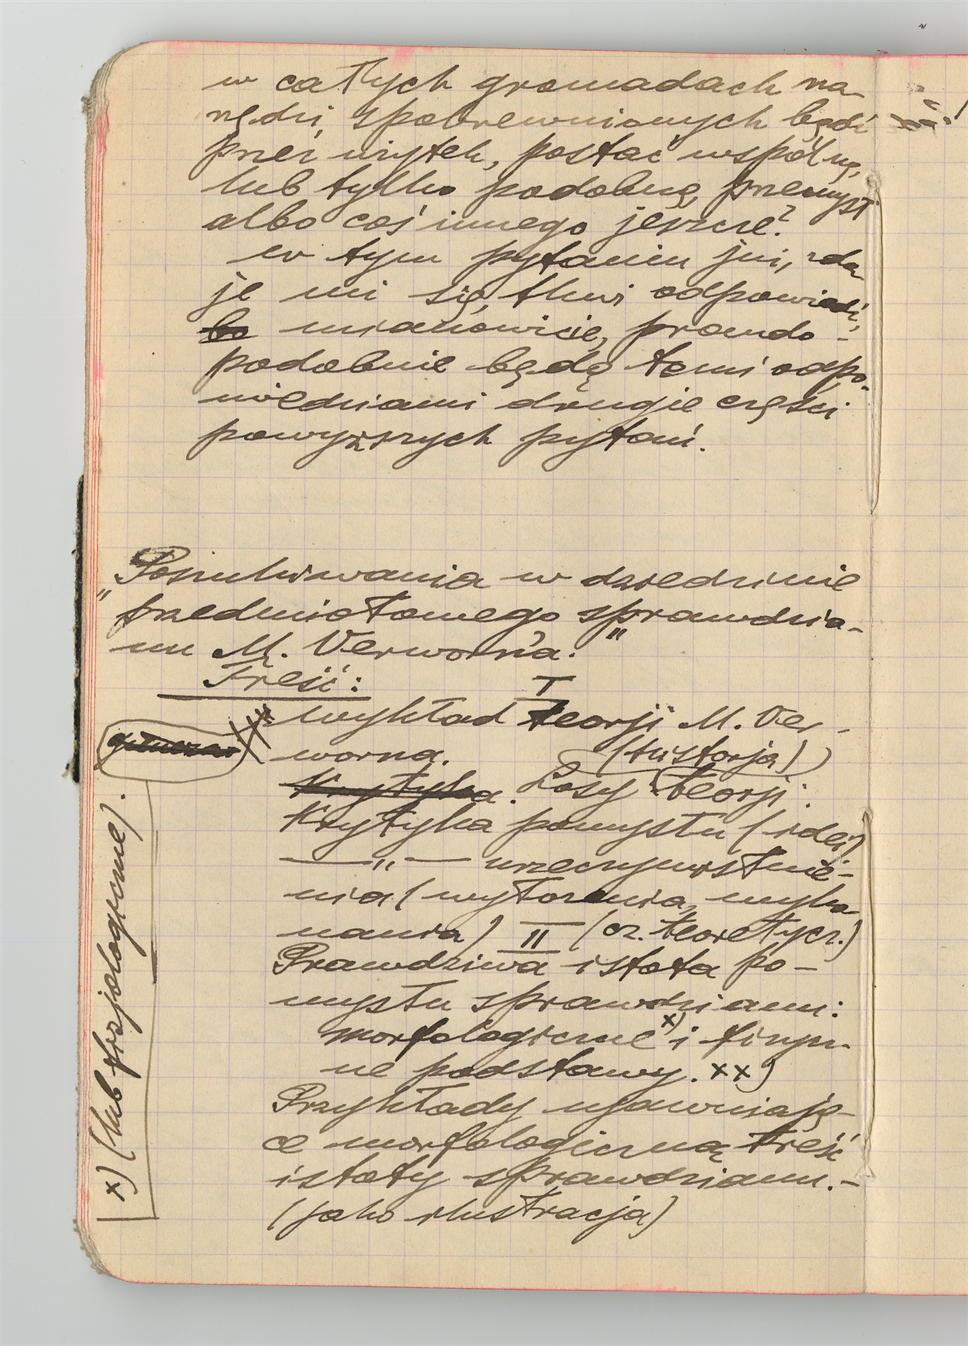 w całych gromadach na-
rzędzi spokrewnionych bądź
przez użytek, postać wspólną,
lub tylko podobną, przemysł
albo coś innego jeszcze?
w tym pytaniu już, zda
je mi się, tkwi odpowiedź,
mianowicie, prawdo-
podobnie będą temi odpo-
wiedziami drugie części
powyższych pytań.
Poszukiwania w dziedzinie
"przedmiotowego sprawdzia-
nu M. Verworna."
Treść:
I
wykład teorji M. Ver-
worna.
(historja)
Krytyka. Losy teorji.
Krytyka pomysłu (idei)
—„— urzeczywistnie-
nia (wytworzenia, wyko
nania) II (cz. teoretycz.)
Prawdziwa istota po-
mysłu sprawdzianu:
morfologiczne x) i fizycz-
ne podstawy. xx)
Przykłady ujawniają-
ce morfologiczną treść
istoty sprawdzianu.-
(jako ilustracja)
x) (lub fizjologiczne).